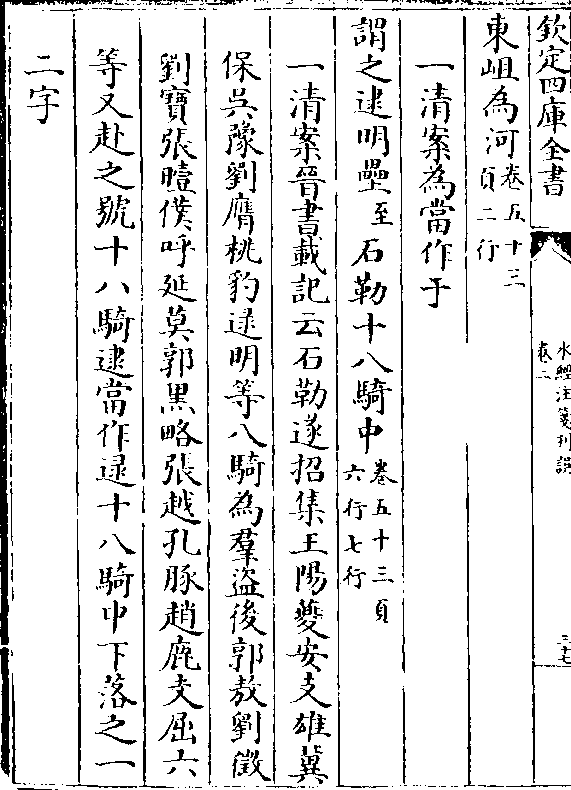 欽定四庫全書
水經注箋刊誤
卷二
三十七
東岨為河卷五十三頁二行
一清案為當作于
謂之逮明壘至石勒十八騎中卷五十三頁六行七行
一清案晉書載記云石勒遂招集王陽夔安支雄冀
保吳豫劉膺桃豹逯明等八騎為羣盜後郭敖劉徵
劉寶張曀僕呼延莫郭黑略張越孔豚趙鹿支屈六
等又赴之號十八騎逮當作逯十八騎中下落之一
二字